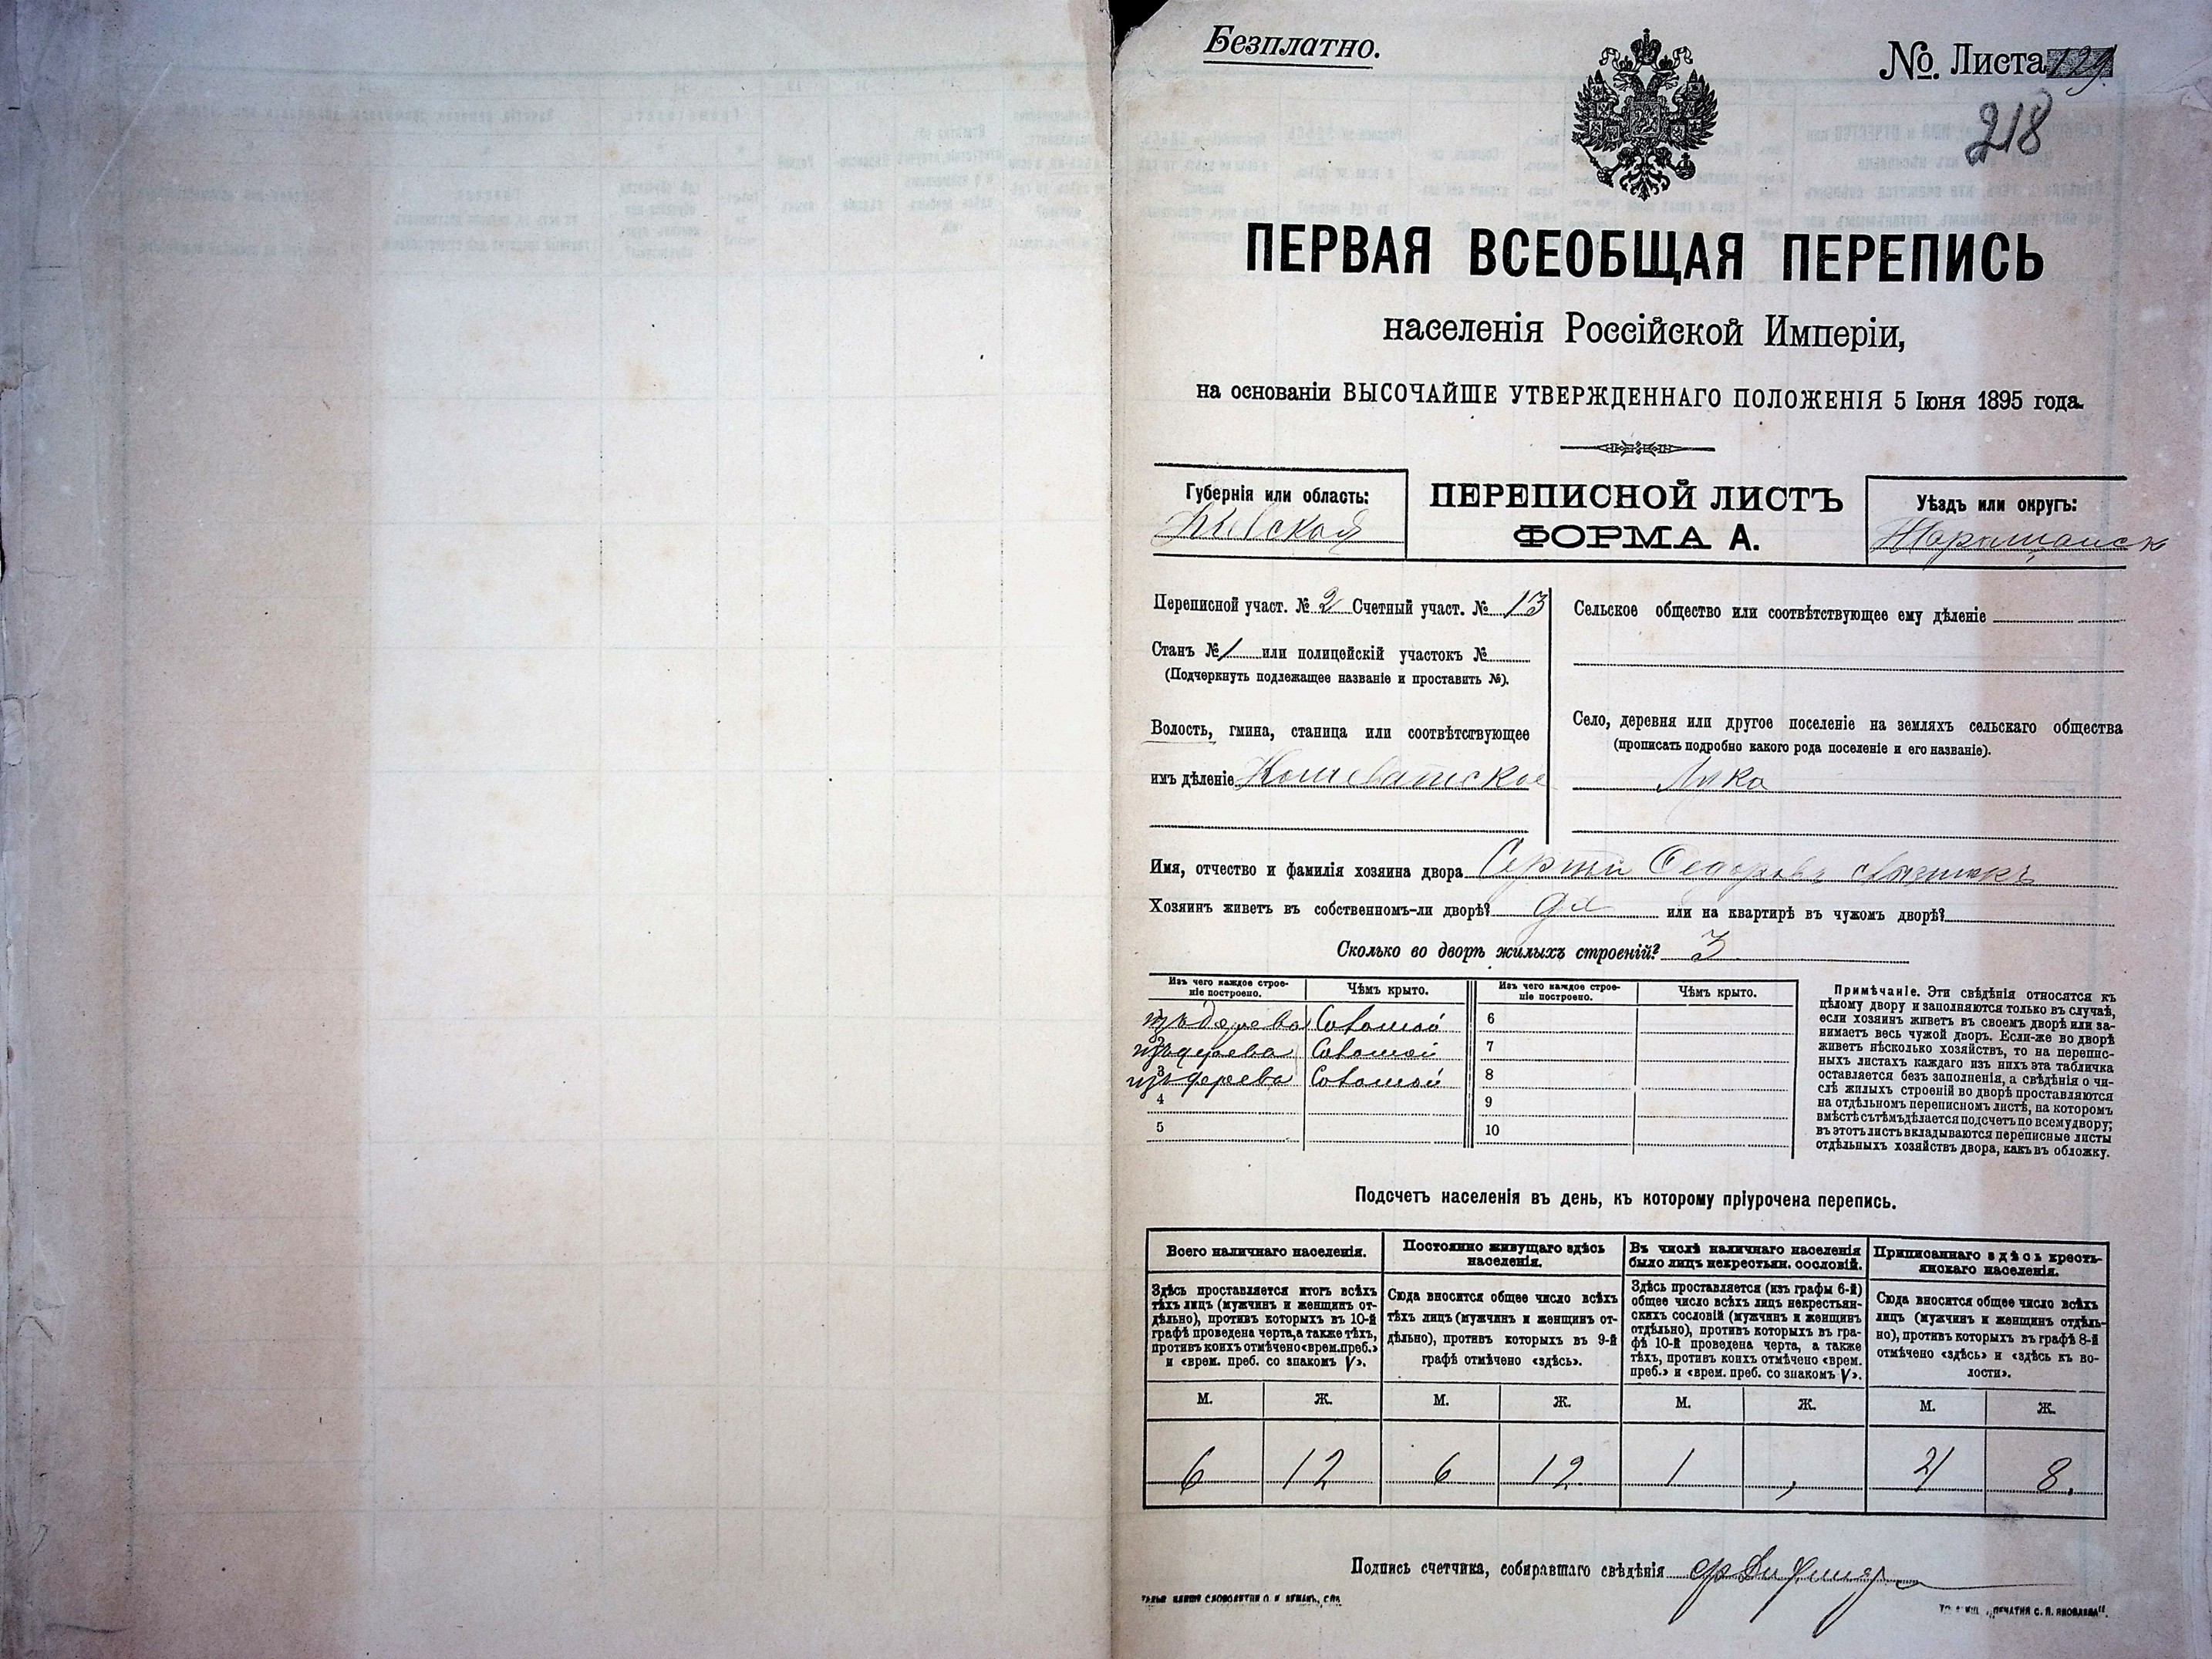 Безплатно.
№ Листа 129.
218
ПЕРВАЯ ВСЕОБЩАЯ ПЕРЕПИСЬ
населенія Россійской Имперіи,
на основаніи ВЫСОЧАЙШЕ УТВЕРЖДЕННАГО ПОЛОЖЕНІЯ 5 Іюня 1895 года.
Губернія или область:
Кіевская
ПЕРЕПИСНОЙ ЛИСТЪ
ФОРМА А.
Уѣздъ или округъ:
Таращанск
Переписной участ. № 2 Счетный участ. № 13
Станъ № 1 или полицейскій участокъ №
(Подчеркнуть подлежащее названіе и проставить №).
Волость, гмина, станица или соотвѣтствующее
имъ дѣленіе Кошеватское
Сельское общество или соотвѣтствующее ему дѣленіе
Село, деревня или другое поселеніе на земляхъ сельскаго общества
(прописать подробно какого рода поселеніе и его названіе).
Лука
Имя, отчество и фамилія хозяина двора Сергій Федоровъ
Хозяинъ живетъ въ собственномъ-ли дворѣ? да или на квартирѣ въ чужомъ дворѣ?
Сколько во дворѣ жилыхъ строеній? 3
Изъ чего каждое строеніе построено. Чѣмъ крыто. Изъ чего каждое строеніе построено. Чѣмъ крыто.
изъ дерева Соломой 6
изъ дерева Соломой 7
3 изъ дерева Соломой 8
4 9
5 10
Примѣчаніе. Эти свѣдѣнія относятся къ
цѣлому двору и заполняются только въ случаѣ,
если хозяинъ живетъ въ своемъ дворѣ или за-
нимаетъ весь чужой дворъ. Если-же во дворѣ
живетъ нѣсколько хозяйствъ, то на перепис-
ныхъ листахъ каждаго изъ нихъ эта табличка
оставляется безъ заполненія, а свѣдѣнія о чи-
слѣ жилыхъ строеній во дворѣ проставляются
на отдѣльномъ переписномъ листѣ, на которомъ
вмѣстѣ съ тѣмъ дѣлается подсчетъ по всему двору;
въ этотъ листъ вкладываются переписные листы
отдѣльныхъ хозяйствъ двора, какъ въ обложку.
Подсчетъ населенія въ день, къ которому пріурочена перепись.
Всего наличнаго населенія.
Здѣсь проставляется итогъ всѣхъ
тѣхъ лицъ (мужчинъ и женщинъ от-
дѣльно), противъ которыхъ въ 10-й
графѣ проведена черта, а также тѣхъ,
противъ коихъ отмѣчено «врем. преб.»
и «врем. преб. со знакомъ V».
Постоянно живущаго здѣсь
населенія.
Сюда вносится общее число всѣхъ
тѣхъ лицъ (мужчинъ и женщинъ от-
дѣльно), противъ которыхъ въ 9-й
графѣ отмѣчено «здѣсь».
Въ числѣ наличнаго населенія
было лицъ некрестьян. сословій.
Здѣсь проставляется (изъ графы 6-й)
общее число всѣхъ лицъ некрестьян-
скихъ сословій (мужчинъ и женщинъ
отдѣльно), противъ которыхъ въ гра-
фѣ 10-й проведена черта, а также
тѣхъ, противъ коихъ отмѣчено «врем.
преб.» и «врем. преб. со знакомъ V».
Приписаннаго здѣсь кресть-
янскаго населенія.
Сюда вносится общее число всѣхъ
лицъ (мужчинъ и женщинъ отдѣль-
но), противъ которыхъ въ графѣ 8-й
отмѣчено «здѣсь» и «здѣсь къ во-
лости».
М. Ж. М. Ж. М. Ж. М. Ж.
6 12 6 12 1 , 8.
Подпись счетчика, собиравшаго свѣдѣнія